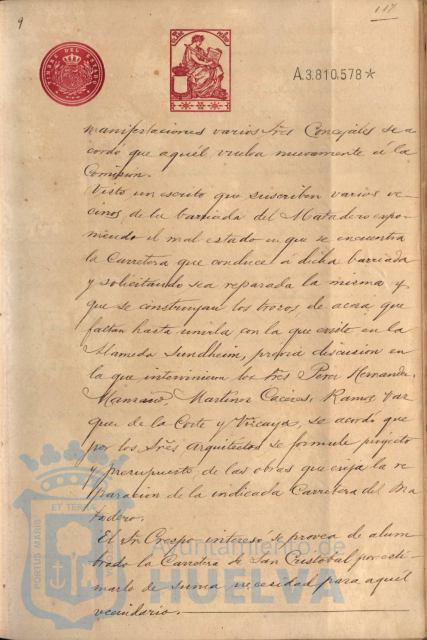 9
117
TIMBRE DEL ESTADO
A.3.810.578*
manifestaciones varios Sres Concejales se a
cordó que aquél vuelva nuevamente á la
Comision.
Visto un escrito que suscriben varios ve-
cinos de la barriada del Matadero expo-
niendo el mal estado en que se encuentra
la Carretera que conduce á dicha barriada
y solicitando sea reparada la misma y
que se construyan los trozos de acera que
faltan hasta unirla con la que existe en la
Alameda Sundheim, previa discusion en
la que intervinieron los Sres Perez Hernandez,
Martinez Cáceres, Ramos Var
gas, de la Corte y Vizcaya, se acordó que
por los Sres Arquitectos se formule proyecto
y presupuesto de las obras que exija la re-
paracion de la indicada Carretera del Ma
tadero.
El Sr Crespo interesó se provea de alum
brado la Carretera de San Cristobal por esti-
marlo de suma necesidad para aquel
vecindario.
PORTUS MARIS ET TERRAE
Ayuntamiento de
HUELVA